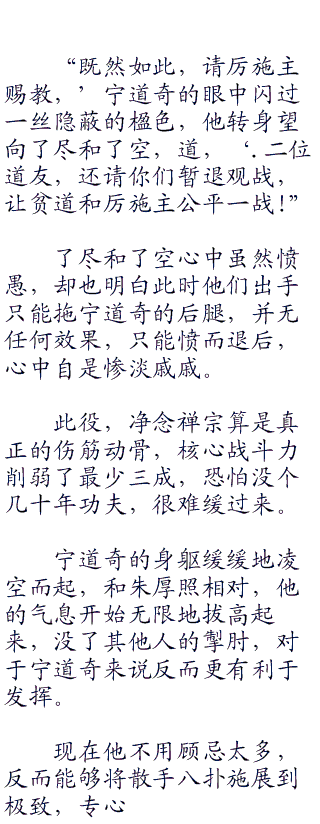 “既然如此，请厉施主
赐教，’宁道奇的眼中闪过
一丝隐蔽的楹色，他转身望
向了尽和了空，道，‘．二位
道友，还请你们暂退观战，
让贫道和厉施主公平一战！”
了尽和了空心中虽然愤
愚，却也明白此时他们出手
只能拖宁道奇的后腿，并无
任何效果，只能愤而退后，
心中自是惨淡戚戚。
此役，净念禅宗算是真
正的伤筋动骨，核心战斗力
削弱了最少三成，恐怕没个
几十年功夫，很难缓过来。
宁道奇的身躯缓缓地凌
空而起，和朱厚照相对，他
的气息开始无限地拔高起
来，没了其他人的掣肘，对
于宁道奇来说反而更有利于
发挥。
现在他不用顾忌太多，
反而能够将散手八扑施展到
极致，专心